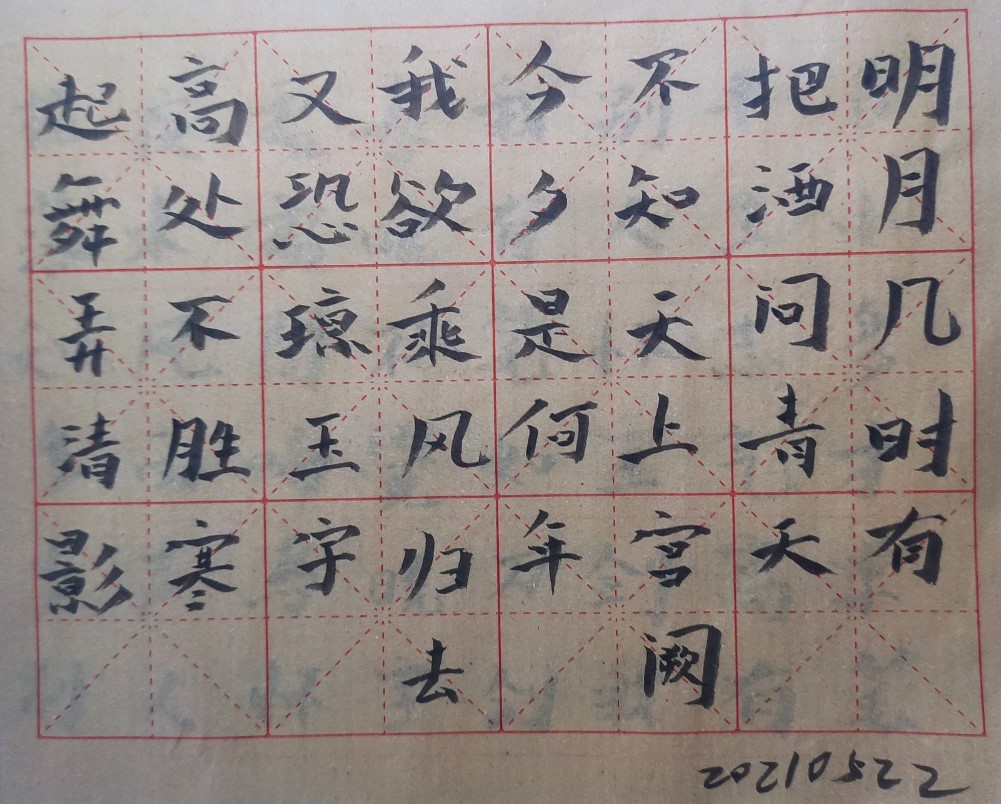 明月几时有
把酒问青天
不知天上宫阙
今夕是何年
我欲乘风归去
又恐琼玉字
高处不胜寒
起舞弄清影
20210522